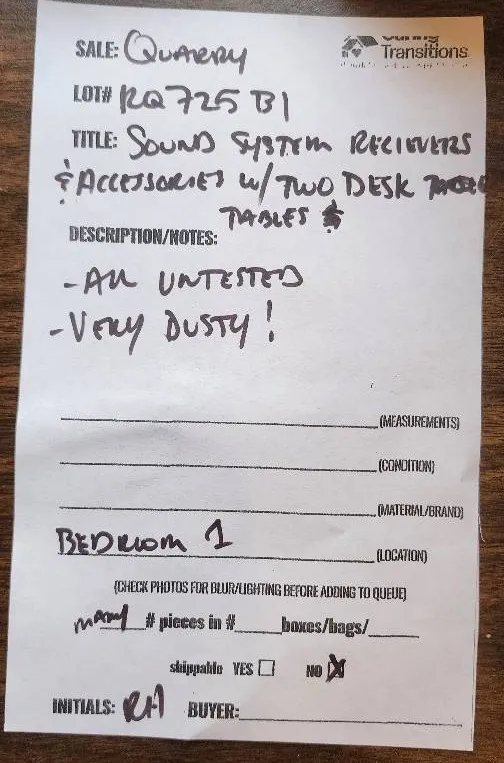 SALE: QUARRY
Caring
Transitions
LOT# RQ725 B1
TITLE: SOUND SYSTEM RECIEVERS
& ACCESSORIES W/ TWO DESK
TABLES &
DESCRIPTION/NOTES:
- ALL UNTESTED
- VERY DUSTY!
(MEASUREMENTS)
(CONDITION)
(MATERIAL/BRAND)
BEDROOM 1 (LOCATION)
(CHECK PHOTOS FOR BLUR/LIGHTING BEFORE ADDING TO QUEUE)
many # pieces in #_____boxes/bags/_____
shippable YES ☐ NO ☒
INITIALS: RH BUYER: